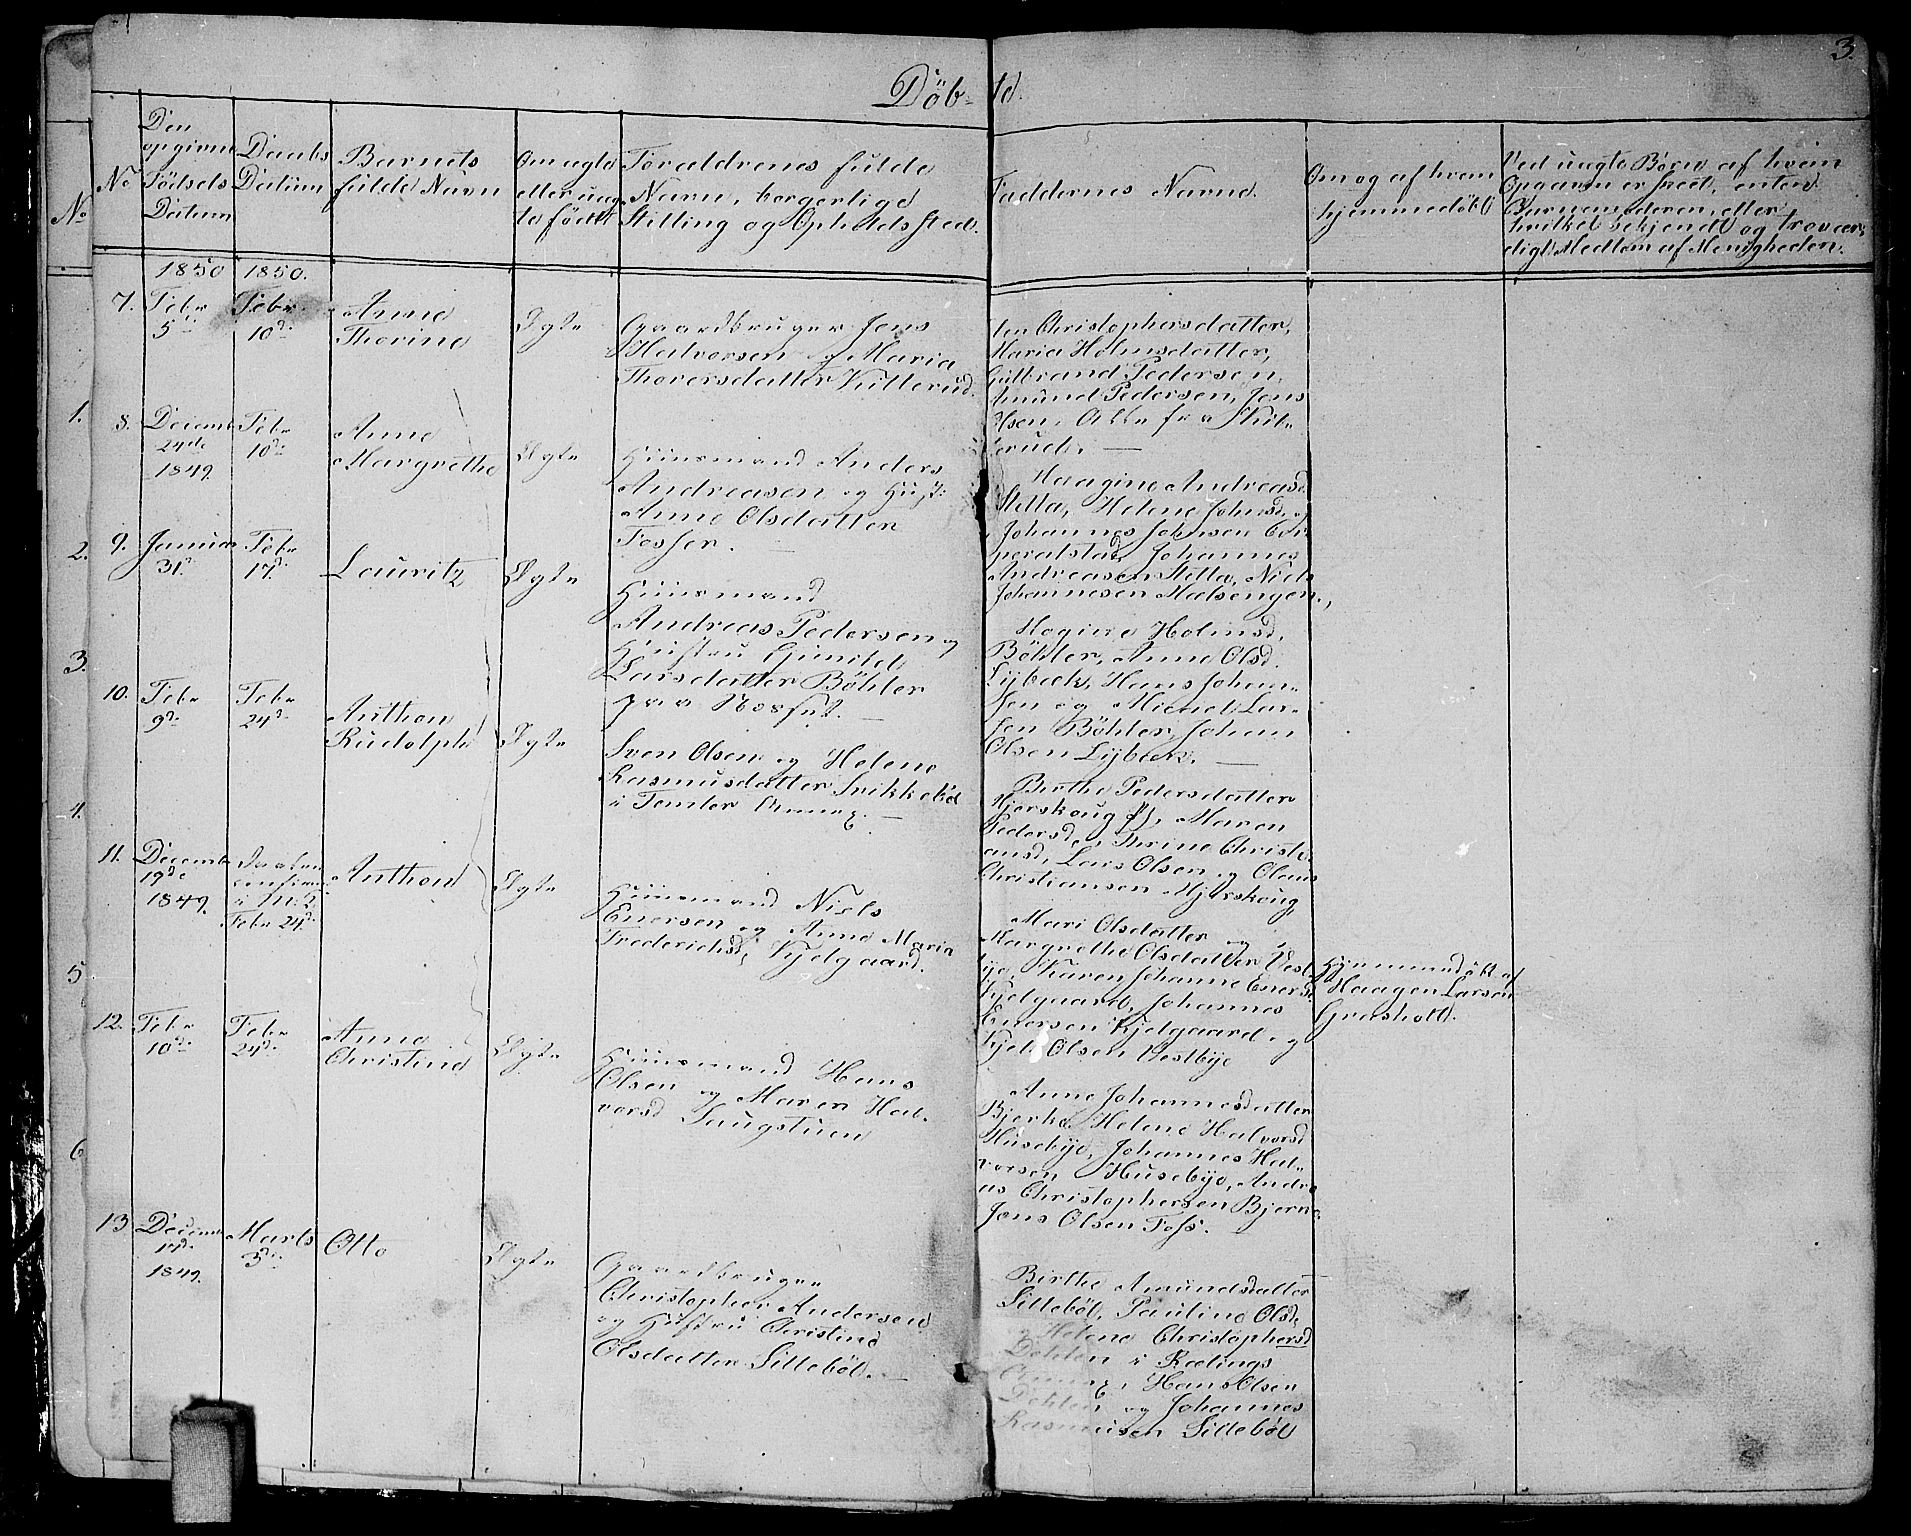 3.
Döbte.
No
No
Den
opgivne
Födsels
Datum
Daabs
Datum
Barnets
fulde Navn
Om ægte
eller uæg-
te födt
Forældrenes fulde
Navn, borgerlige
Stilling og Opholdssted.
Faddernes Navne.
Om og af hvem
hjemmedöbt
Ved uægte Börn af hvem
Opgaven er skeet, enten
Barnemoderen, eller
hvilket bekjendt og trovær-
digt Medlem af Menigheden.
1850 1850.
7. Febr
5te
Febr
10de
Anne
Thorine
Ægte
Gaardbruger Jens
Halvorsen og Maria
Thoresdatter Kutterud
Christophersdatter,
Maria Holmsdatter,
Gulbrand Pedersen,
Amund Pedersen, Jens
Olsen, Alle fra
rud. —
1.
8. Decemb
24de
1849.
Febr
10de
Anne
Margrethe
Ægte
Huusmand Anders
Andreasen og Hust:
Anne Olsdatter
Fosser. —
Haagine Andreasd.
Stetta, Helene Johnsd. og
Johannes Johnsen Cor-
peralstad, Johannes
Andreasen Stetta, Niels
Johannesen Malsengen.
2.
9. Januar
31te
Febr
17de
Lauritz
Ægte
Huusmand
Andreas Pedersen og
Hustru Gunild
Larsdatter Böhler
paa Næsset. —
Hagine Holmsd.
Böhler, Anne Olsd.
Lybæk, Hans Johan-
sen og Michel Lar-
sen Böhler, Johan
Olsen Lybæk. —
3.
10. Febr
9de
Febr
24de
Anthon
Rudolph
Ægte
Sven Olsen og Helene
Rasmusdatter Svikkeböl
i Annex. —
Birthe Pedersdatter
Mjerskoug, Maren
Pedersd., Thrine Christi-
ansd, Lars Olsen og Olaus
Christiansen Mjerskoug
4.
11. Decemb
19de
1849.
Daaben
confirm.
i
Febr 24de
Anthon
Ægte
Huusmand Niels
Enersen og Anne Maria
Frederichsd, Kjelgaard.
Mari Olsdatter og
Margrethe Olsdatter Vest-
bye, Karen Johanne Enersd.
Kjelgaard, Johannes
Enersen Kjelgaard og
Kjel Olsen Vestbye
Hjemmedöbt af
Haagen Larsen
Gresholt.
5
12. Febr
10de
Febr
24de
Anne
Christine
Ægte
Huusmand Hans
Olsen og Maren Hal-
vorsd Taugstuen
Anne Johannesdatter
Bjerke, Helene Halvorsd
Husebye, Johannes Hal-
vorsen Husebye, Andre-
as Christophersen Bjerke
Jens Olsen Foss.
6
13 Decemb
17de
1849.
Marts
3de
Otto
Ægte
Gaardbruger
Christopher Andersen
og Hustru Christine
Olsdatter Silleböl. —
Birthe Amundsdatter
Silleböl, Pauline Olsd.
og Helene Christophersd
Dehlen i Rælings
Annex, Hans Olsen
Dehlen og Johannes
Rasmusen Silleböl